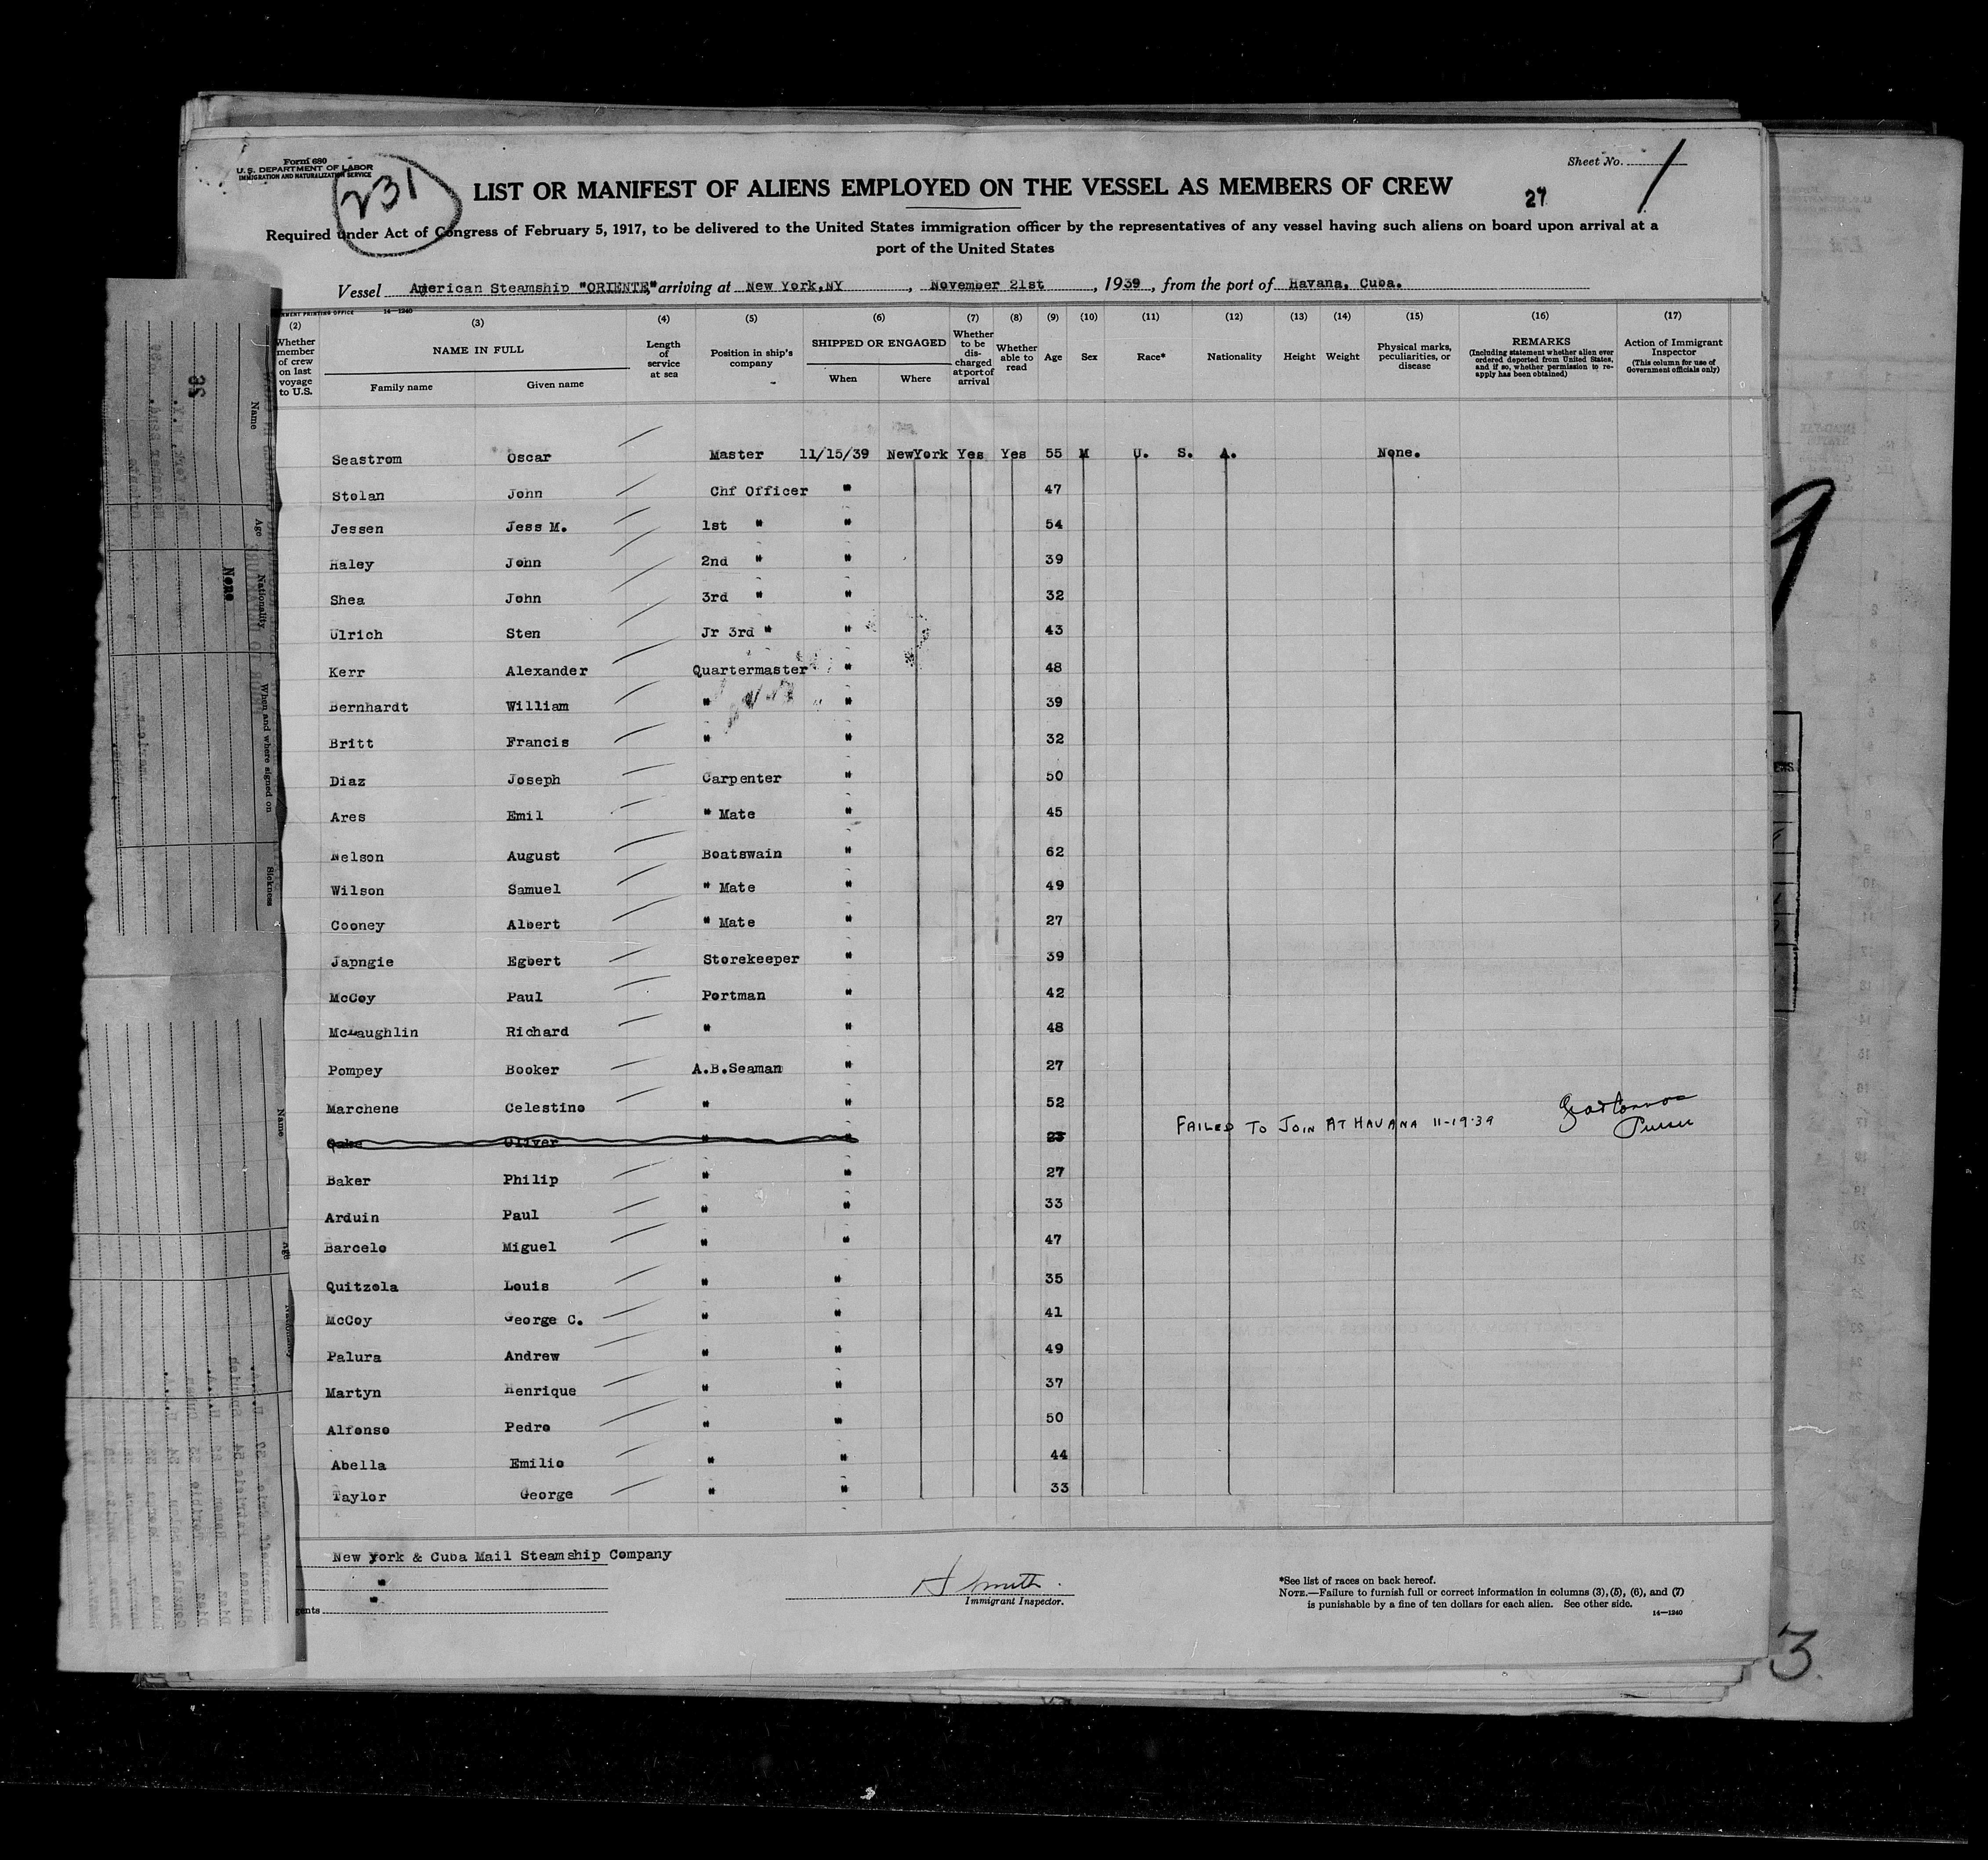 Form 680
U.S. DEPARTMENT OF LABOR
IMMIGRATION AND NATURALIZATION SERVICE
231
Sheet No. 1
LIST OR MANIFEST OF ALIENS EMPLOYED ON THE VESSEL AS MEMBERS OF CREW
27
Required under Act of Congress of February 5, 1917, to be delivered to the United States immigration officer by the representatives of any vessel having such aliens on board upon arrival at a
port of the United States
Vessel American Steamship "ORIENTE," arriving at New York, NY, November 21st, 1939, from the port of Havana, Cuba.
14—1240
(2) (3) (4) (5) (6) (7) (8) (9) (10) (11) (12) (13) (14) (15) (16) (17)
Whether member of crew on last voyage to U.S.
NAME IN FULL
Family name Given name
Length of service at sea
Position in ship's company
SHIPPED OR ENGAGED
When Where
Whether to be discharged at port of arrival
Whether able to read
Age
Sex
Race*
Nationality
Height
Weight
Physical marks, peculiarities, or disease
REMARKS
(Including statement whether alien ever ordered deported from United States, and if so, whether permission to reapply has been obtained)
Action of Immigrant Inspector
(This column for use of Government officials only)
Seastrom Oscar Master 11/15/39 NewYork Yes Yes 55 M U. S. A. None.
Stolan John Chf Officer " 47
Jessen Jess M. 1st " " 54
Haley John 2nd " " 39
Shea John 3rd " " 32
Ulrich Sten Jr 3rd " " 43
Kerr Alexander Quartermaster " 48
Bernhardt William " " 39
Britt Francis " " 32
Diaz Joseph Carpenter " 50
Ares Emil " Mate " 45
Nelson August Boatswain " 62
Wilson Samuel " Mate " 49
Cooney Albert " Mate " 27
Japngie Egbert Storekeeper " 39
McCoy Paul Portman " 42
McLaughlin Richard " " 48
Pompey Booker A.B.Seaman " 27
Marchene Celestino " " 52
Oliver " " 23 FAILED TO JOIN AT HAVANA 11-19-39 Purser
Baker Philip " " 27
Arduin Paul " " 33
Barcelo Miguel " " 47
Quitzola Louis " " 35
McCoy George C. " " 41
Palura Andrew " " 49
Martyn Henrique " " 37
Alfonso Pedro " " 50
Abella Emilio " " 44
Taylor George " " 33
New York & Cuba Mail Steamship Company
"
"
H Smith
Immigrant Inspector.
*See list of races on back hereof.
NOTE.—Failure to furnish full or correct information in columns (3), (5), (6), and (7)
is punishable by a fine of ten dollars for each alien. See other side.
14—1240
38
Name
Age
None
Nationality
When and where signed on
Sickness
Name
Age
3